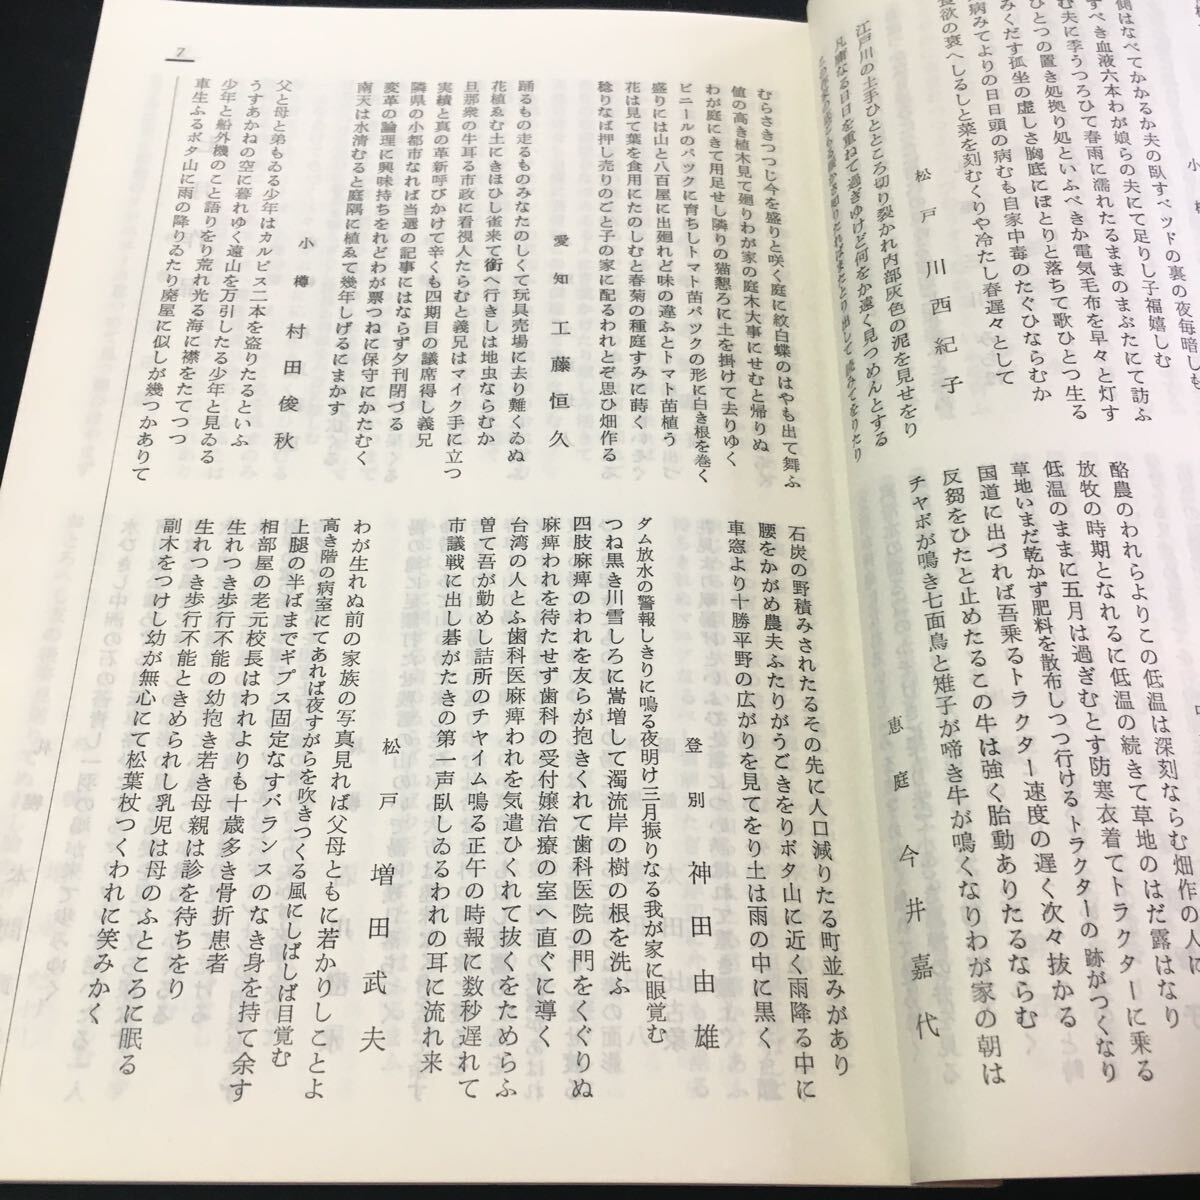 側はなべてかかるか夫の臥すベッドの裏の夜毎暗しも
すべき血液六本わが娘らの夫にて足りし子福嬉しむ
む夫に季うつろひて春雨に濡れたるままのまぶたにて訪ふ
ひとつの置き処拠り処といふべきか電気毛布を早々と灯す
みくだす孤坐の虚しさ胸底にぽとりと落ちて歌ひとつ生る
病みてよりの日日頭の病むも自家中毒のたぐひならむか
食欲の衰へしるしと菜を刻むくりや冷たし春遅々として
松戸 川西紀子
江戸川の土手ひとところ切り裂かれ内部灰色の泥を見せをり
凡庸なる日日を重ねて過ぎゆけど何をか遠く見つめんとする
酪農のわれらよりこの低温は深刻ならむ畑作の人に
放牧の時期となれるに低温の続きて草地のはだ露はなり
低温のままに五月は過ぎむとす防寒衣着てトラクターに乗る
草地いまだ乾かず肥料を散布しつつ行けるトラクターの跡がつくなり
国道に出づれば吾乗るトラクター速度の遅く次々抜かる
反芻をひたと止めたるこの牛は強く胎動ありたるならむ
チャボが鳴き七面鳥と雉子が啼き牛が鳴くなりわが家の朝は
恵庭 今井嘉代
7
むらさきつつじ今を盛りと咲く庭に紋白蝶のはやも出て舞ふ
値の高き植木見て廻りわが家の庭木大事にせむと帰りぬ
わが庭にきて用足せし隣りの猫懇ろに土を掛けて去りゆく
ビニールのパックに育ちしトマト苗パックの形に白き根を巻く
盛りには山と八百屋に出廻れど味の違ふとトマト苗植う
花は見て葉を食用にたのしむと春菊の種庭すみに蒔く
稔りなば押し売りのごと子の家に配るわれとぞ思ひ畑作る
愛知 工藤恒久
踊るもの走るものみなたのしくて玩具売場に去り難くゐぬ
花植ゑむ土にきほひし雀来て銜へ行きしは地虫ならむか
旦那衆の牛耳る市政に看視人たらむと義兄はマイク手に立つ
実績と真の革新呼びかけて辛くも四期目の議席得し義兄
隣県の小都市なれば当選の記事にはならず夕刊閉づる
変革の論理に興味持ちをれどわが票つねに保守にかたむく
南天は水清むると庭隅に植ゑて幾年しげるにまかす
小樽 村田俊秋
父と母と弟もゐる少年はカルピス二本を盗りたるといふ
うすあかねの空に暮れゆく遠山を万引したる少年と見ゐる
少年と船外機のこと語りをり荒れ光る海に襟をたてつつ
車生ふるボタ山に雨の降りゐたり廃屋に似しが幾つかありて
石炭の野積みされたるその先に人口減りたる町並みがあり
腰をかがめ農夫ふたりがうごきをりボタ山に近く雨降る中に
車窓より十勝平野の広がりを見てをり土は雨の中に黒く
登別 神田由雄
ダム放水の警報しきりに鳴る夜明け三月振りなる我が家に眼覚む
つね黒き川雪しろに嵩増して濁流岸の樹の根を洗ふ
四肢麻痺のわれを友らが抱きくれて歯科医院の門をくぐりぬ
麻痺われを待たせず歯科の受付嬢治療の室へ直ぐに導く
台湾の人とふ歯科医麻痺われを気遣ひくれて抜くをためらふ
曽て吾が勤めし詰所のチャイム鳴る正午の時報に数秒遅れて
市議戦に出し碁がたきの第一声臥しゐるわれの耳に流れ来
松戸 増田武夫
わが生れぬ前の家族の写真見れば父母ともに若かりしことよ
高き階の病室にてあれば夜すがらを吹きつくる風にしばしば目覚む
上腿の半ばまでギプス固定なすバランスのなき身を持て余す
相部屋の老元校長はわれよりも十歳多き骨折患者
生れつき歩行不能の幼抱き若き母親は診を待ちをり
生れつき歩行不能ときめられし乳児は母のふところに眠る
副木をつけし幼が無心にて松葉杖つくわれに笑みかく